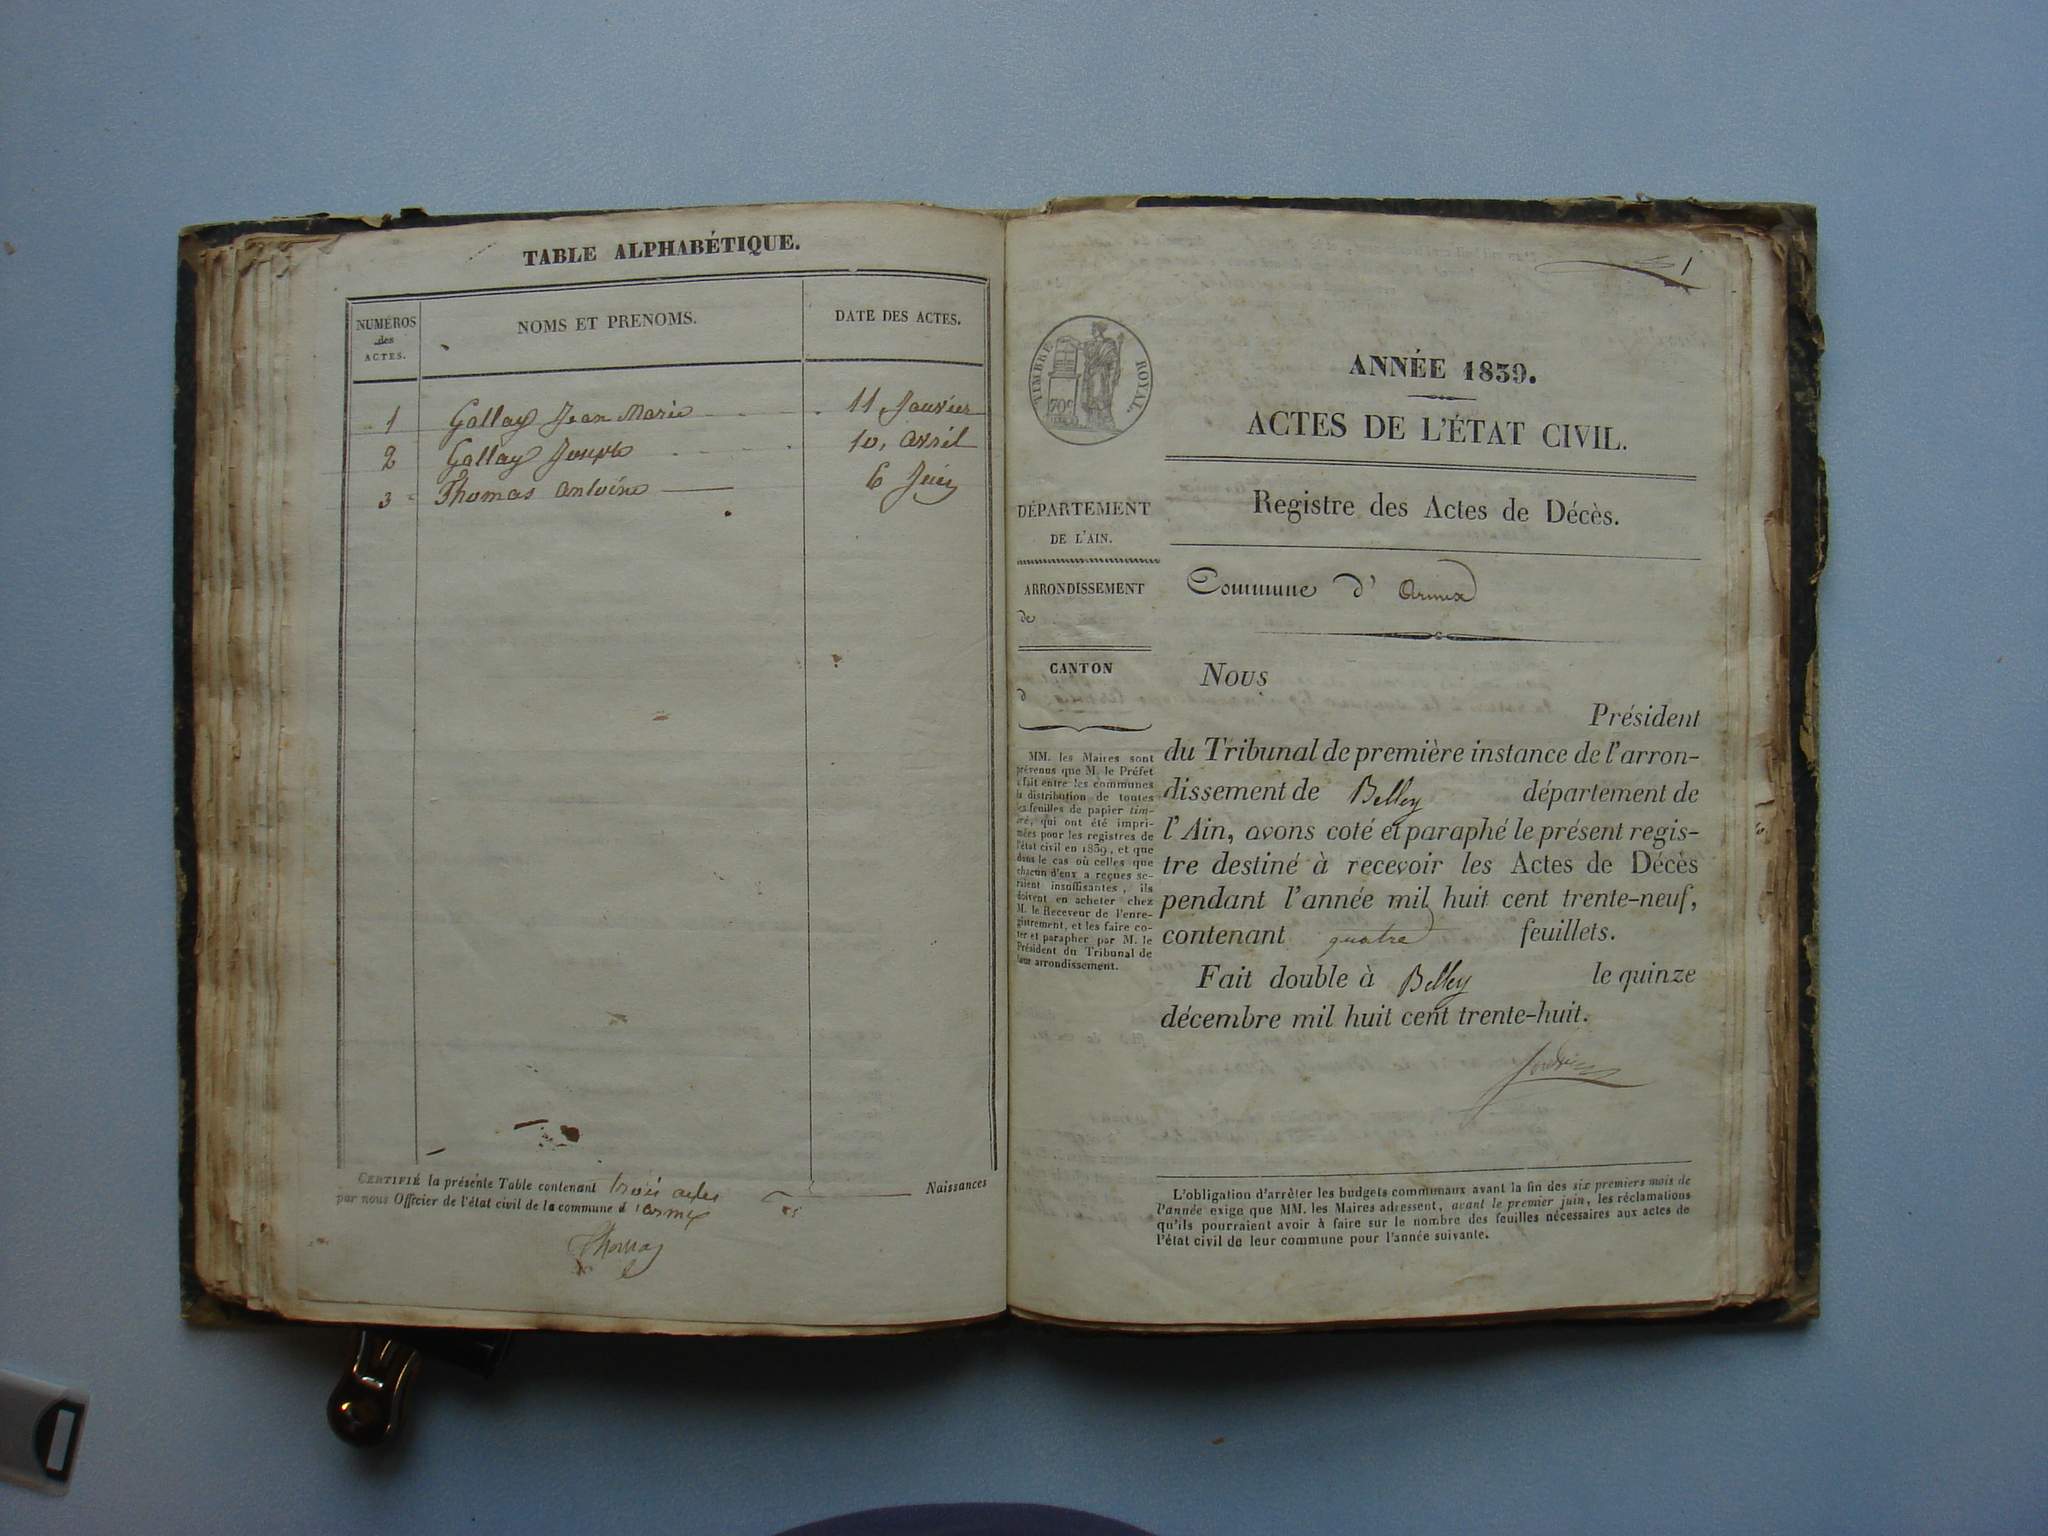 TABLE ALPHABÉTIQUE.
NUMÉROS des ACTES.
NOMS ET PRENOMS.
DATE DES ACTES.
1 Gallay Jean Marie 11 Janvier
2 Gallay Joseph 10, avril
3 Thomas antoine 6 Juin
CERTIFIÉ la présente Table contenant trois actes Naissances
par nous Officier de l'état civil de la commune d'armix
Thomas
1
TIMBRE ROYAL.
70c
ANNÉE 1839.
ACTES DE L'ÉTAT CIVIL.
Registre des Actes de Décès.
DÉPARTEMENT
DE L'AIN.
ARRONDISSEMENT
de
CANTON
d
MM. les Maires sont
prévenus que M. le Préfet
a fait entre les communes
la distribution de toutes
les feuilles de papier tim-
bré, qui ont été impri-
mées pour les registres de
l'état civil en 1839, et que
dans le cas où celles que
chacun d'eux a reçues se-
raient insuffisantes, ils
doivent en acheter chez
M. le Receveur de l'enre-
gistrement, et les faire co-
ter et parapher par M. le
Président du Tribunal de
leur arrondissement.
Commune d' Armix
Nous
Président
du Tribunal de première instance de l'arron-
dissement de Belley département de
l'Ain, avons coté et paraphé le présent regis-
tre destiné à recevoir les Actes de Décès
pendant l'année mil huit cent trente-neuf,
contenant quatre feuillets.
Fait double à Belley le quinze
décembre mil huit cent trente-huit.
L'obligation d'arrêter les budgets communaux avant la fin des six premiers mois de
l'année exige que MM. les Maires adressent, avant le premier juin, les réclamations
qu'ils pourraient avoir à faire sur le nombre des feuilles nécessaires aux actes de
l'état civil de leur commune pour l'année suivante.